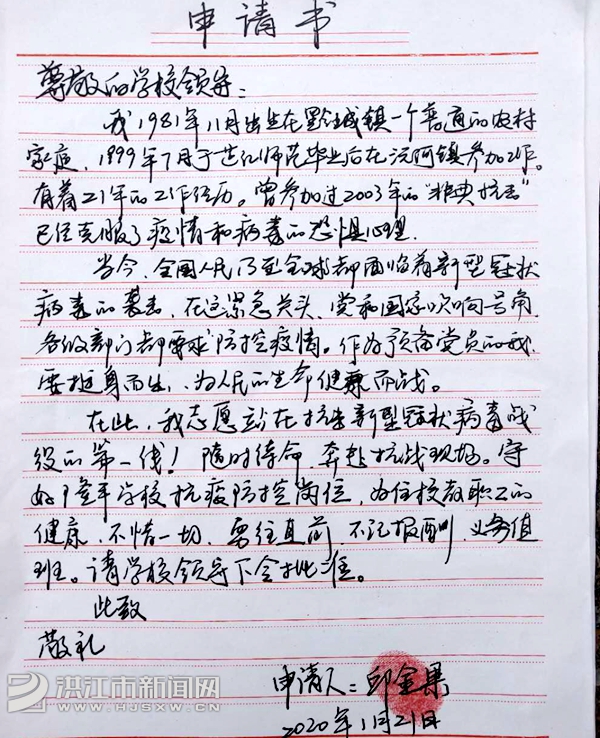 申请书
尊敬的学校领导：
我1981年11月出生在黔城镇一个普通的农村
家庭，1999年7月于芷江师范毕业后在沅河镇参加工作。
有着21年的工作经历。曾参加过2003年的“非典抗击”
已经克服了疫情和病毒的恐惧心理。
当今，全国人民乃至全球都面临着新型冠状
病毒的袭击，在这紧急关头，党和国家吹响号角，
各级部门都要求防控疫情。作为预备党员的我，
要挺身而出，为人民的生命健康而战。
在此，我志愿站在抗击新型冠状病毒战
役的第一线！随时待命，奔赴抗战现场。守
好学校抗疫防控岗位，为住校教职工的
健康，不惜一切，勇往直前，不记报酬，义务值
班。请学校领导下令批准。
此致
敬礼
申请人：邱金果
2020年1月21日
洪江市新闻网
WWW.HJSXW.CN